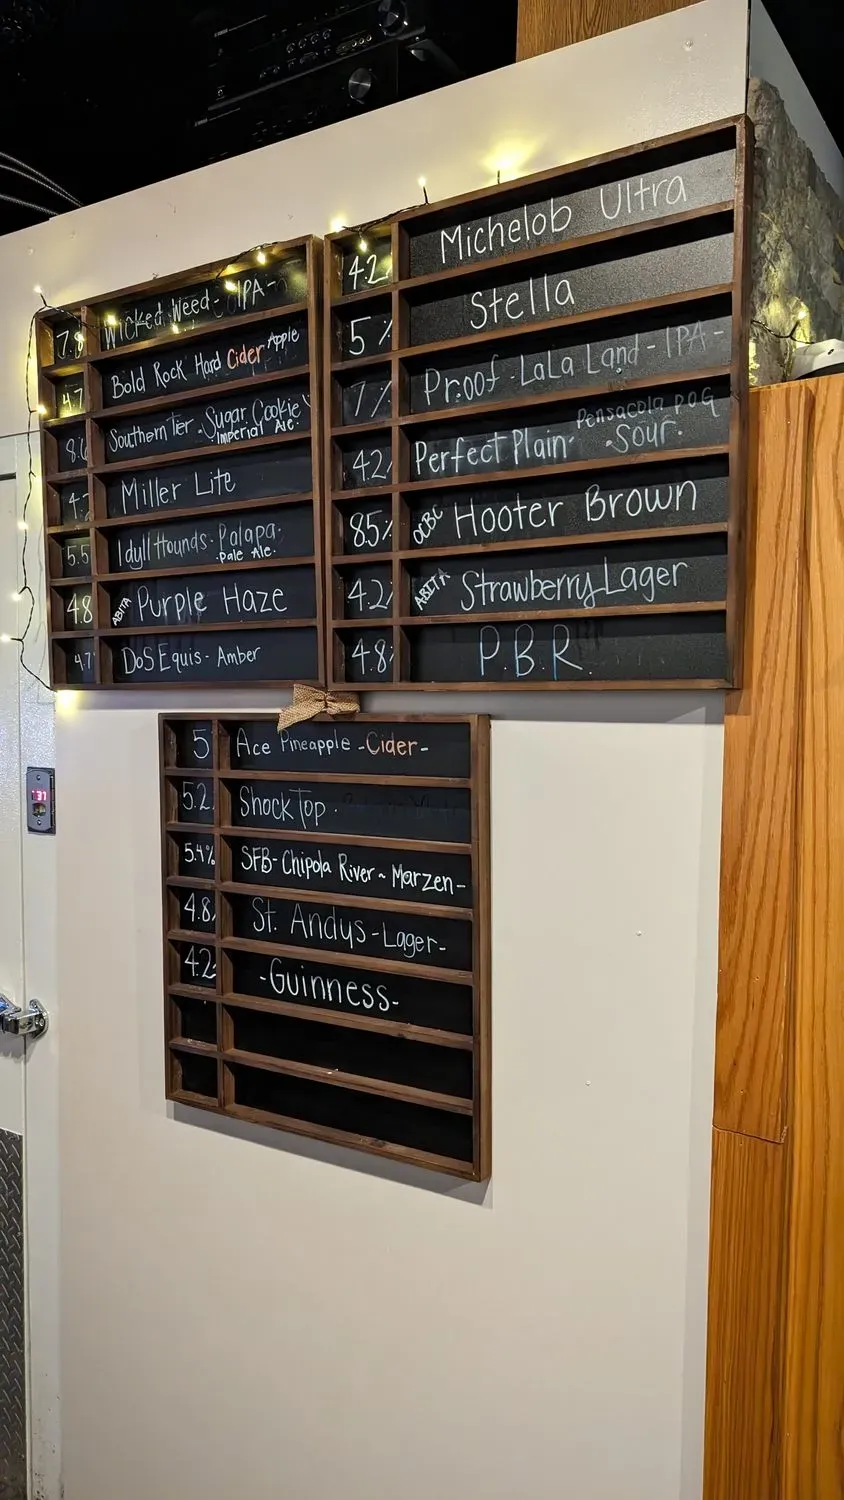 7.8 Wicked Weed - IPA -
4.7 Bold Rock Hard Cider Apple
8.6 Southern Tier - Sugar Cookie
Imperial Ale.
4.2 Miller Lite
5.5 Idyll Hounds - Palapa.
. Pale Ale.
4.8 ABITA Purple Haze
4.7 DoS Equis - Amber
4.2 Michelob Ultra
5% Stella
7% Proof - LaLa Land - IPA -
4.2 Perfect Plain - Pensacola POG
. Sour.
8.5% OCBC Hooter Brown
4.2 ABITA Strawberry Lager
4.8 P.B.R.
5 Ace Pineapple - Cider -
5.2 Shock Top .
5.4% SFB - Chipola River ~ Marzen -
4.8 St. Andys - Lager -
4.2 - Guinness -